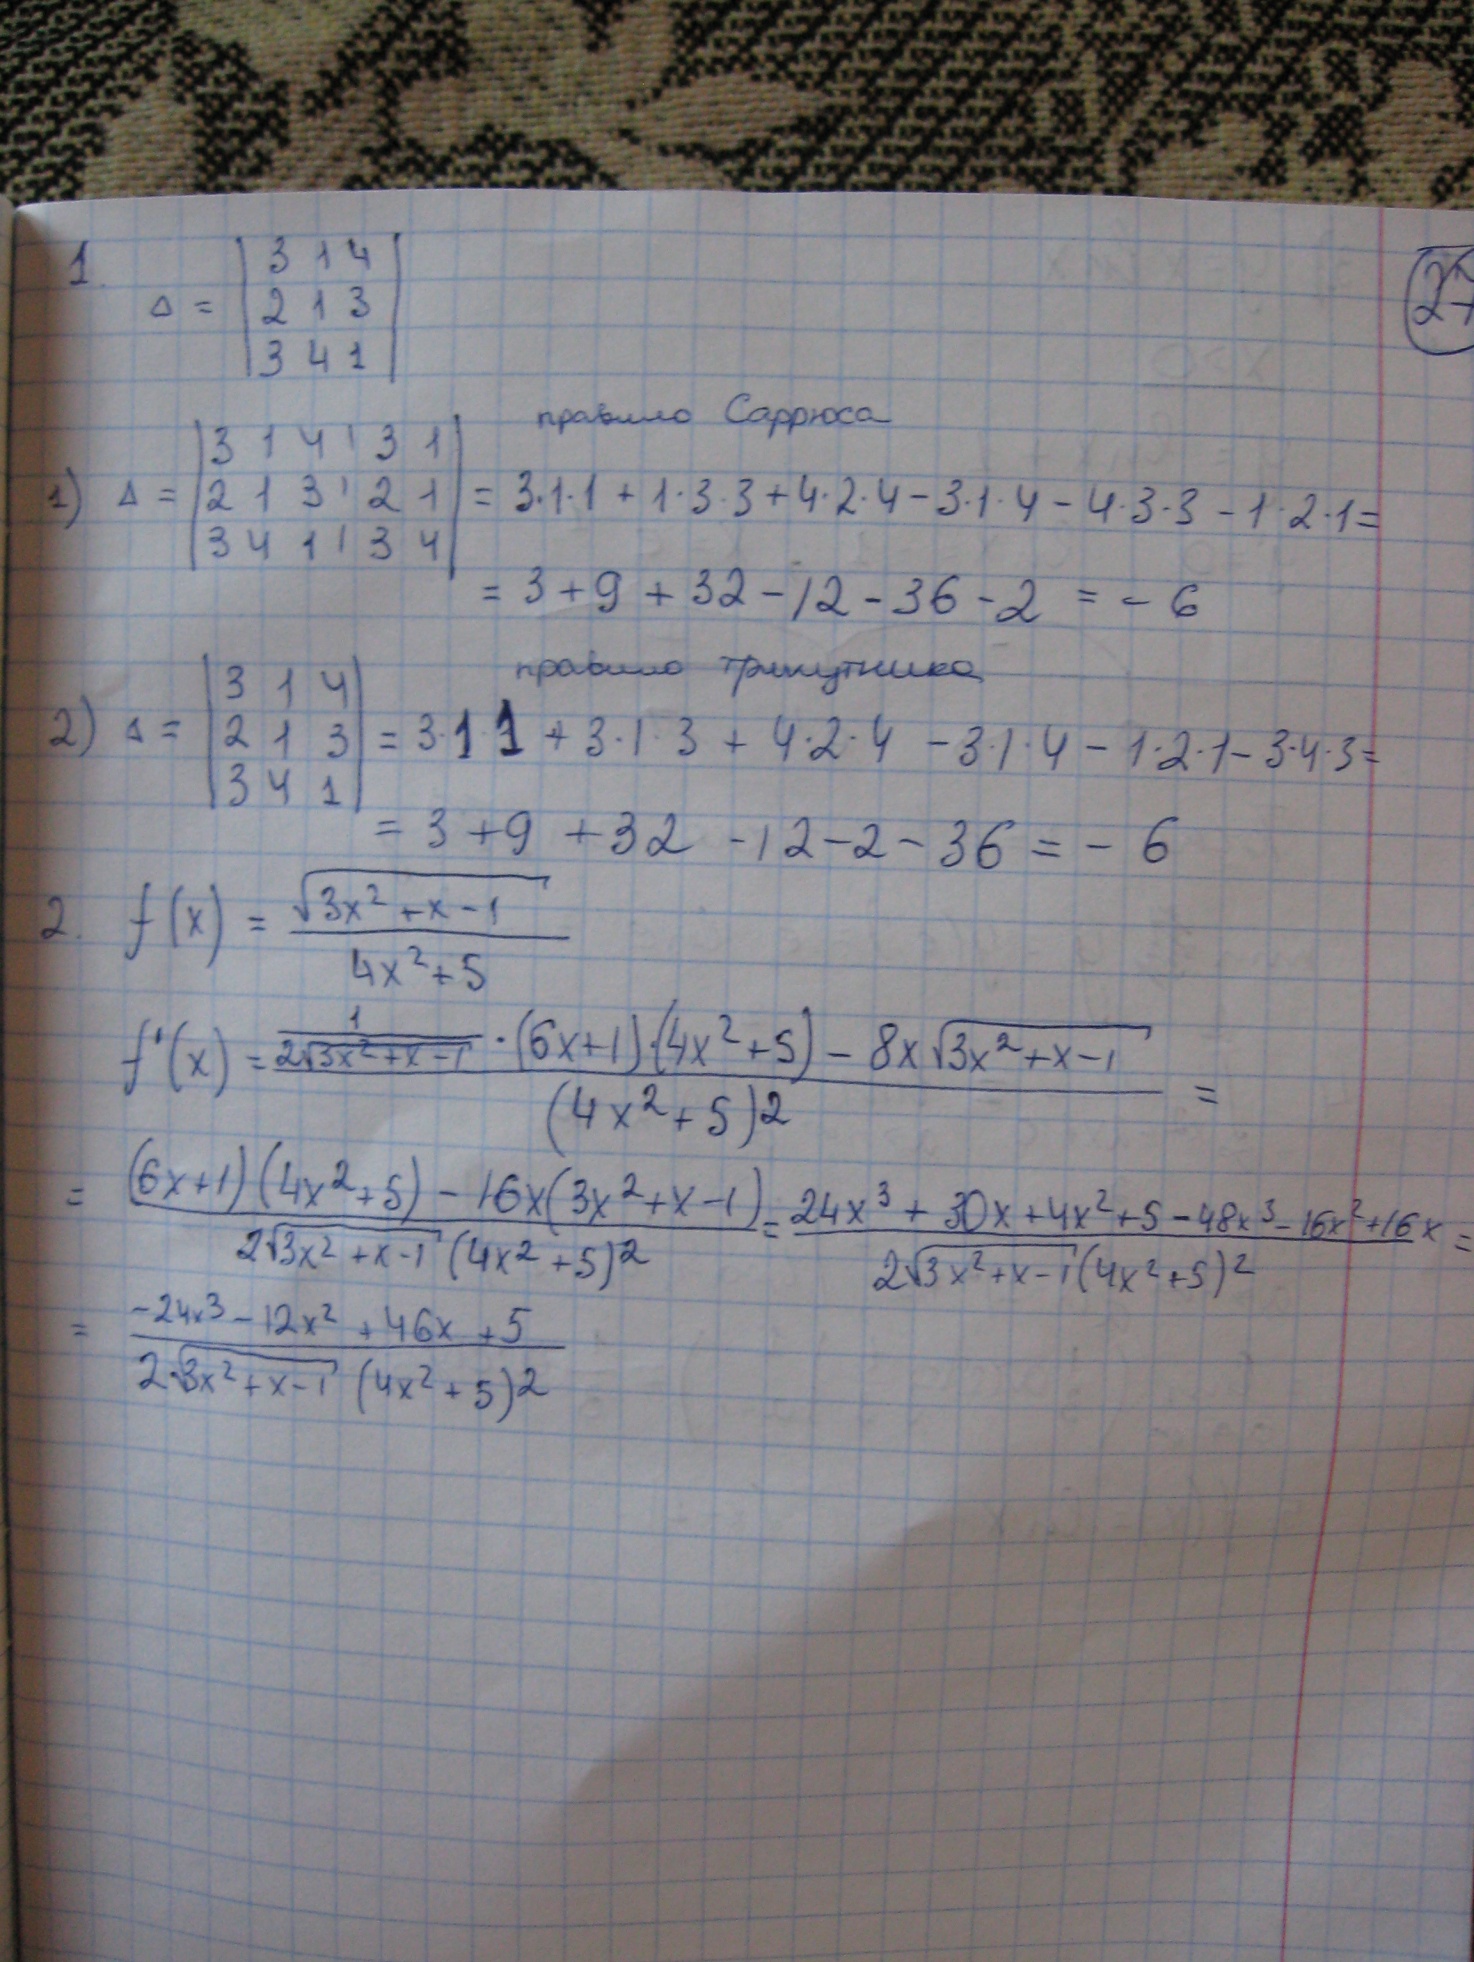 27
1. Δ = | 3 1 4 |
| 2 1 3 |
| 3 4 1 |
правило Саррюса
1) Δ = | 3 1 4 ¦ 3 1 |
| 2 1 3 ¦ 2 1 | = 3·1·1 + 1·3·3 + 4·2·4 − 3·1·4 − 4·3·3 − 1·2·1 =
| 3 4 1 ¦ 3 4 |
= 3 + 9 + 32 − 12 − 36 − 2 = − 6
правило трикутника
2) Δ = | 3 1 4 |
| 2 1 3 | = 3·1·1 + 3·1·3 + 4·2·4 − 3·1·4 − 1·2·1 − 3·4·3 =
| 3 4 1 |
= 3 + 9 + 32 − 12 − 2 − 36 = − 6
2. f(x) = √(3x² + x − 1) / (4x² + 5)
f'(x) = (1 / (2√(3x² + x − 1)) · (6x+1)·(4x² + 5) − 8x√(3x² + x − 1)) / (4x² + 5)² =
= ((6x+1)(4x² + 5) − 16x(3x² + x − 1)) / (2√(3x² + x − 1) (4x² + 5)²) = (24x³ + 30x + 4x² + 5 − 48x³ − 16x² + 16x) / (2√(3x² + x − 1)(4x² + 5)²) =
= (−24x³ − 12x² + 46x + 5) / (2·√(3x² + x − 1) (4x² + 5)²)